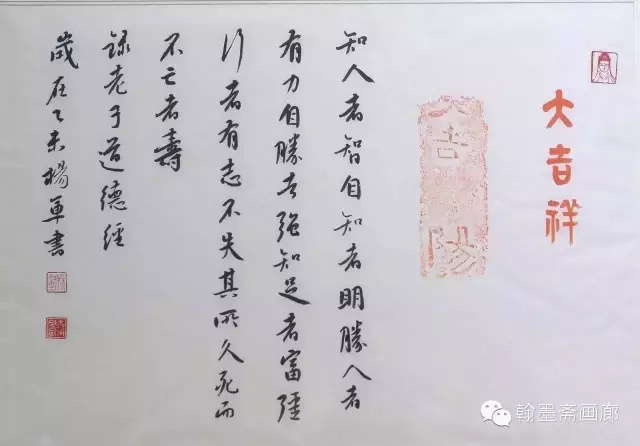 大吉祥
大吉
陽
知人者智自知者明勝人者
有力自勝者强知足者富彊
行者有志不失其所久死而
不亡者壽
錄老子道德經
歲在乙未楊軍書
翰墨斋画廊